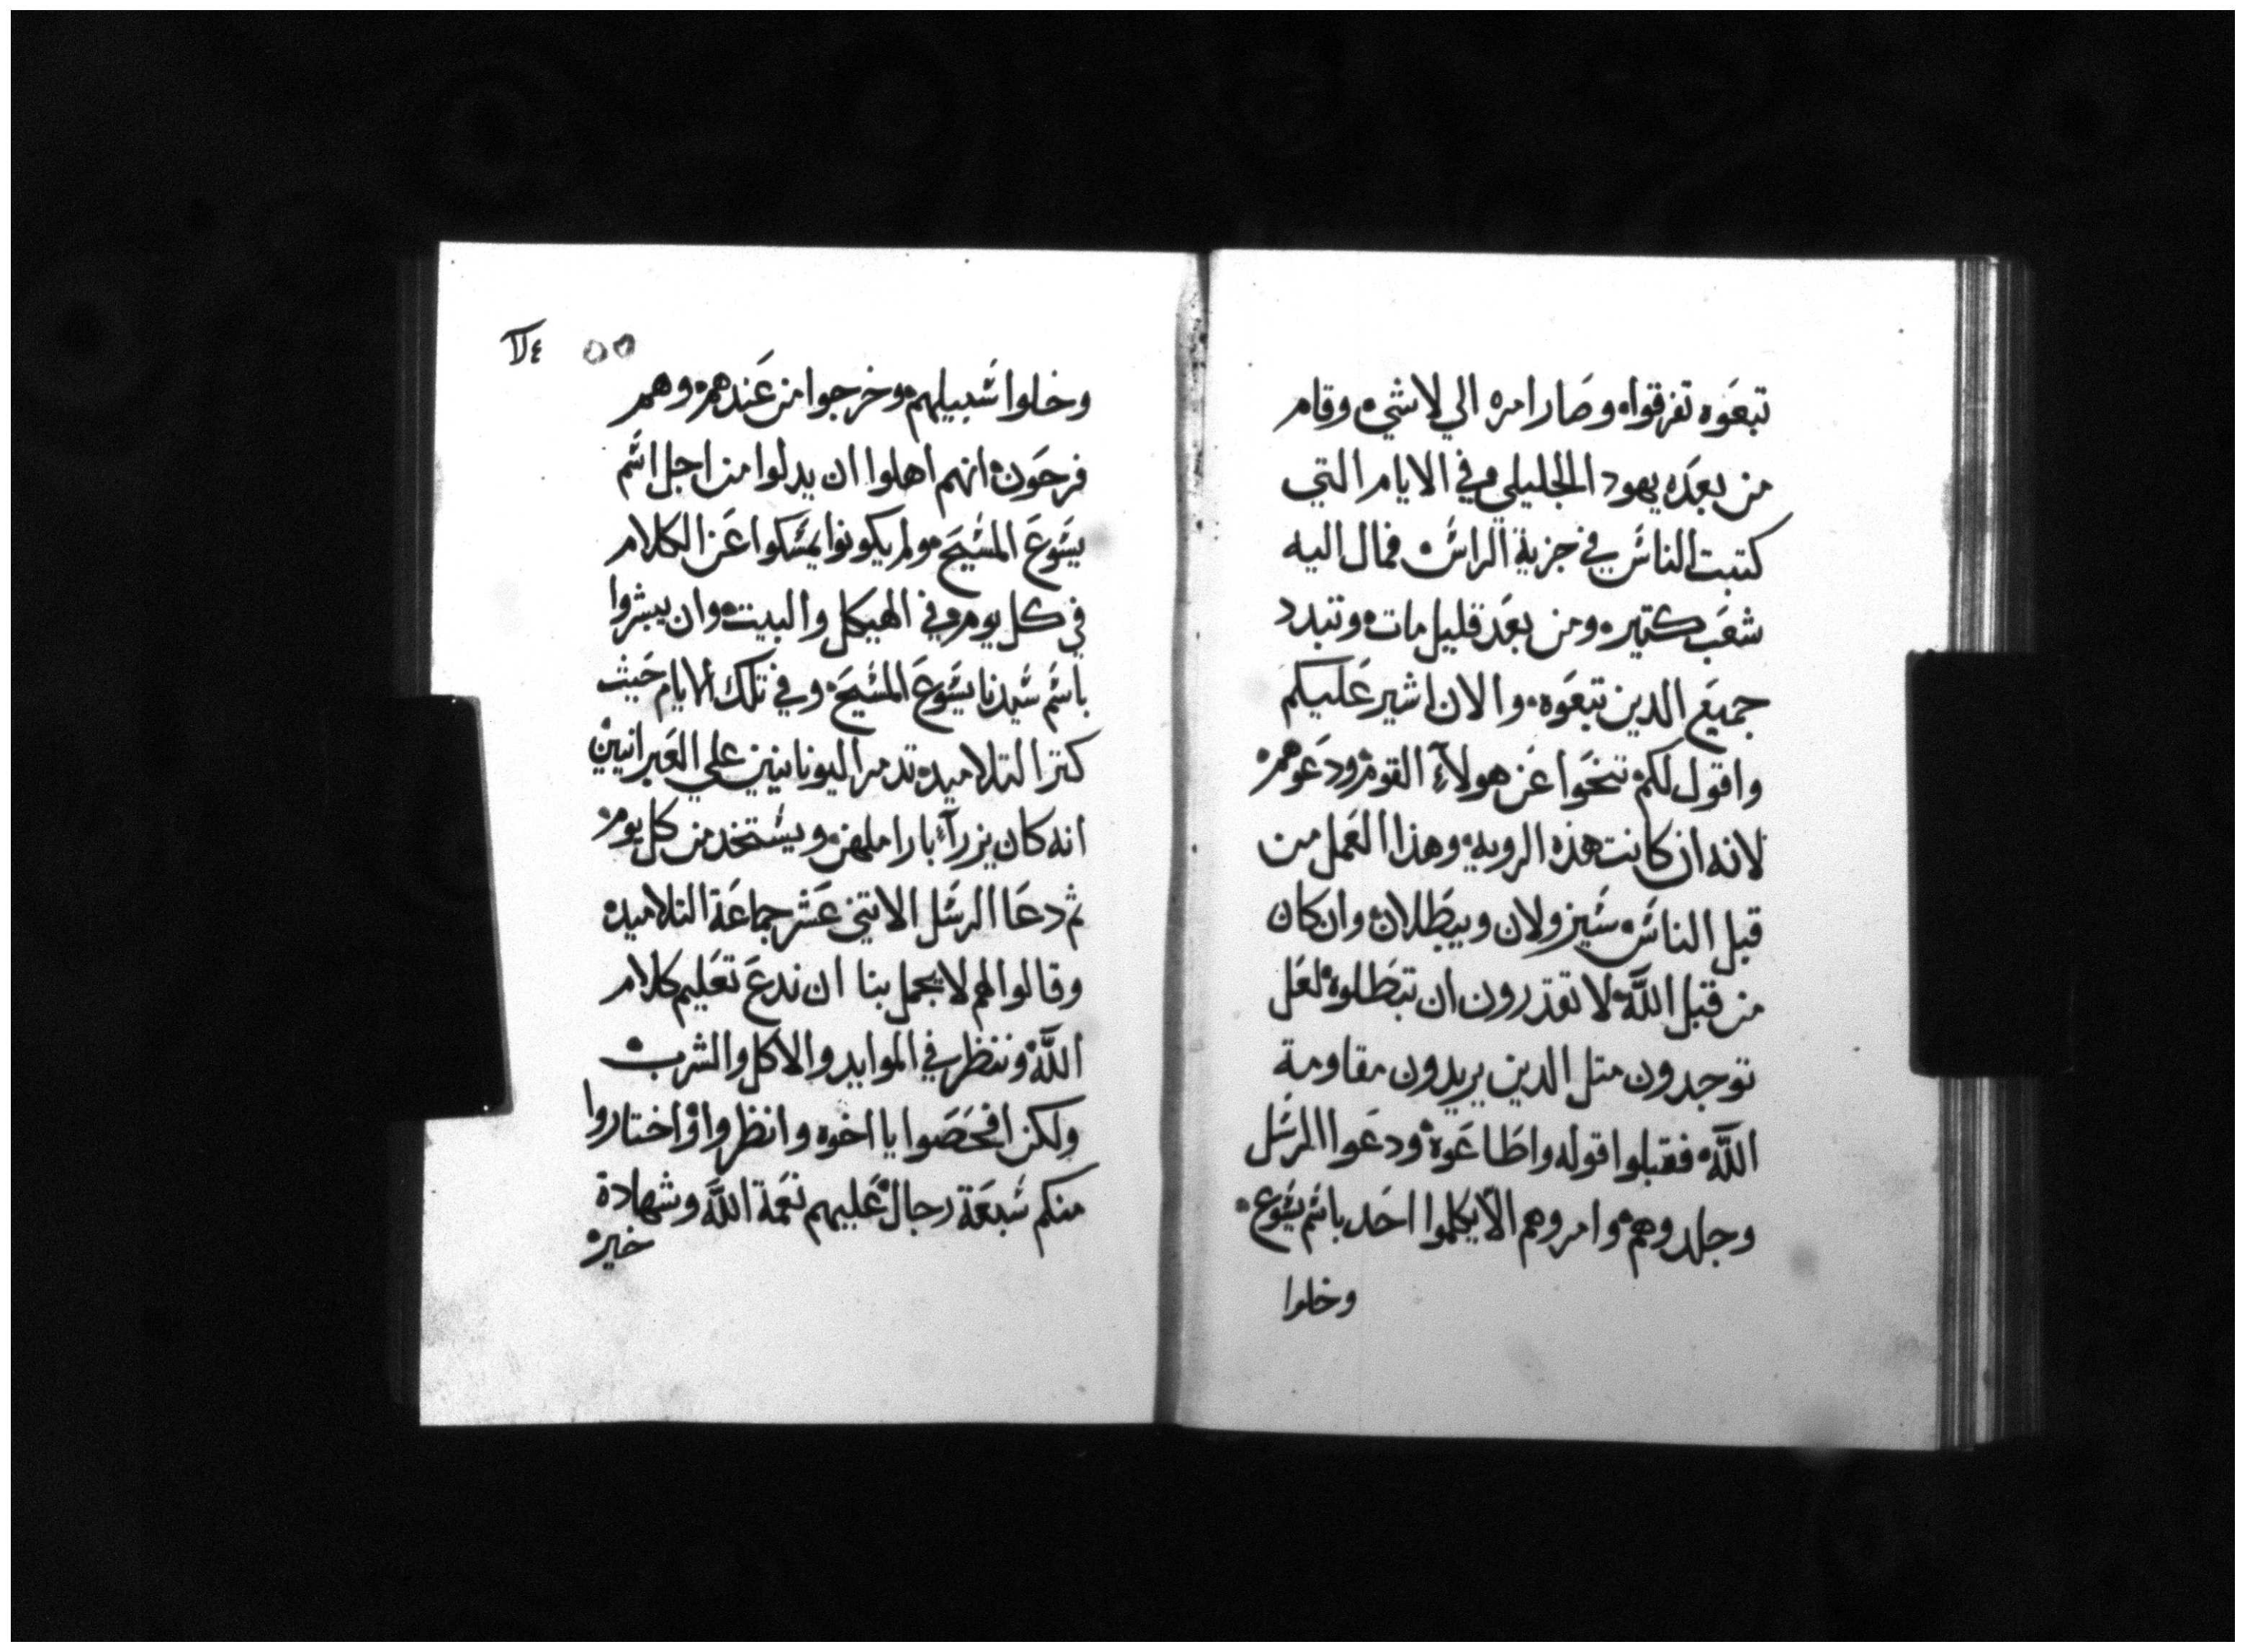 تبعوه تفرقوا وصار امره الي لاشي وقام
من بعده يهودا الجليلي وفي الايام التي
كتبت الناس في جزية الراس فمال اليه
شعب كتير ومن بعد قليل مات وتبدد
جميع الدين تبعوه والان اشير عليكم
واقول لكم تنحوا عن هولاء القوم ودعوهم
لانه ان كانت هذه الرويه وهذا العمل من
قبل الناس سيزولان ويبطلان وان كان
من قبل الله لا تقدرون ان تبطلوه لعل
توجدون متل الدين يريدون مقاومة
الله فقبلوا قوله واطاعوه ودعوا الرسل
وجلدوهم وامروهم الا يكلموا احد باسم يسوع
وخلوا
٥٥
وخلوا سبيلهم وخرجوا من عندهم وهم
فرحون انهم اهلوا ان يدلوا من اجل اسم
يسوع المسيح ولم يكونوا يمسكوا عن الكلام
في كل يوم وفي الهيكل والبيت وان يبشروا
باسم سيدنا يسوع المسيح وفي تلك الايام حيث
كتر التلاميد تدمر اليونانيين علي العبرانيين
انه كان يزرآء باراملهن ويستخدمن كل يوم
ثم دعا الرسل الاتني عشر جماعة التلاميد
وقالوا لهم لا يجمل بنا ان ندع تعليم كلام
الله وننظر في الموايد والاكل والشرب
ولكن افحصوا يا اخوه وانظروا واختاروا
منكم سبعة رجال عليهم نعمة الله وشهادة
خيره